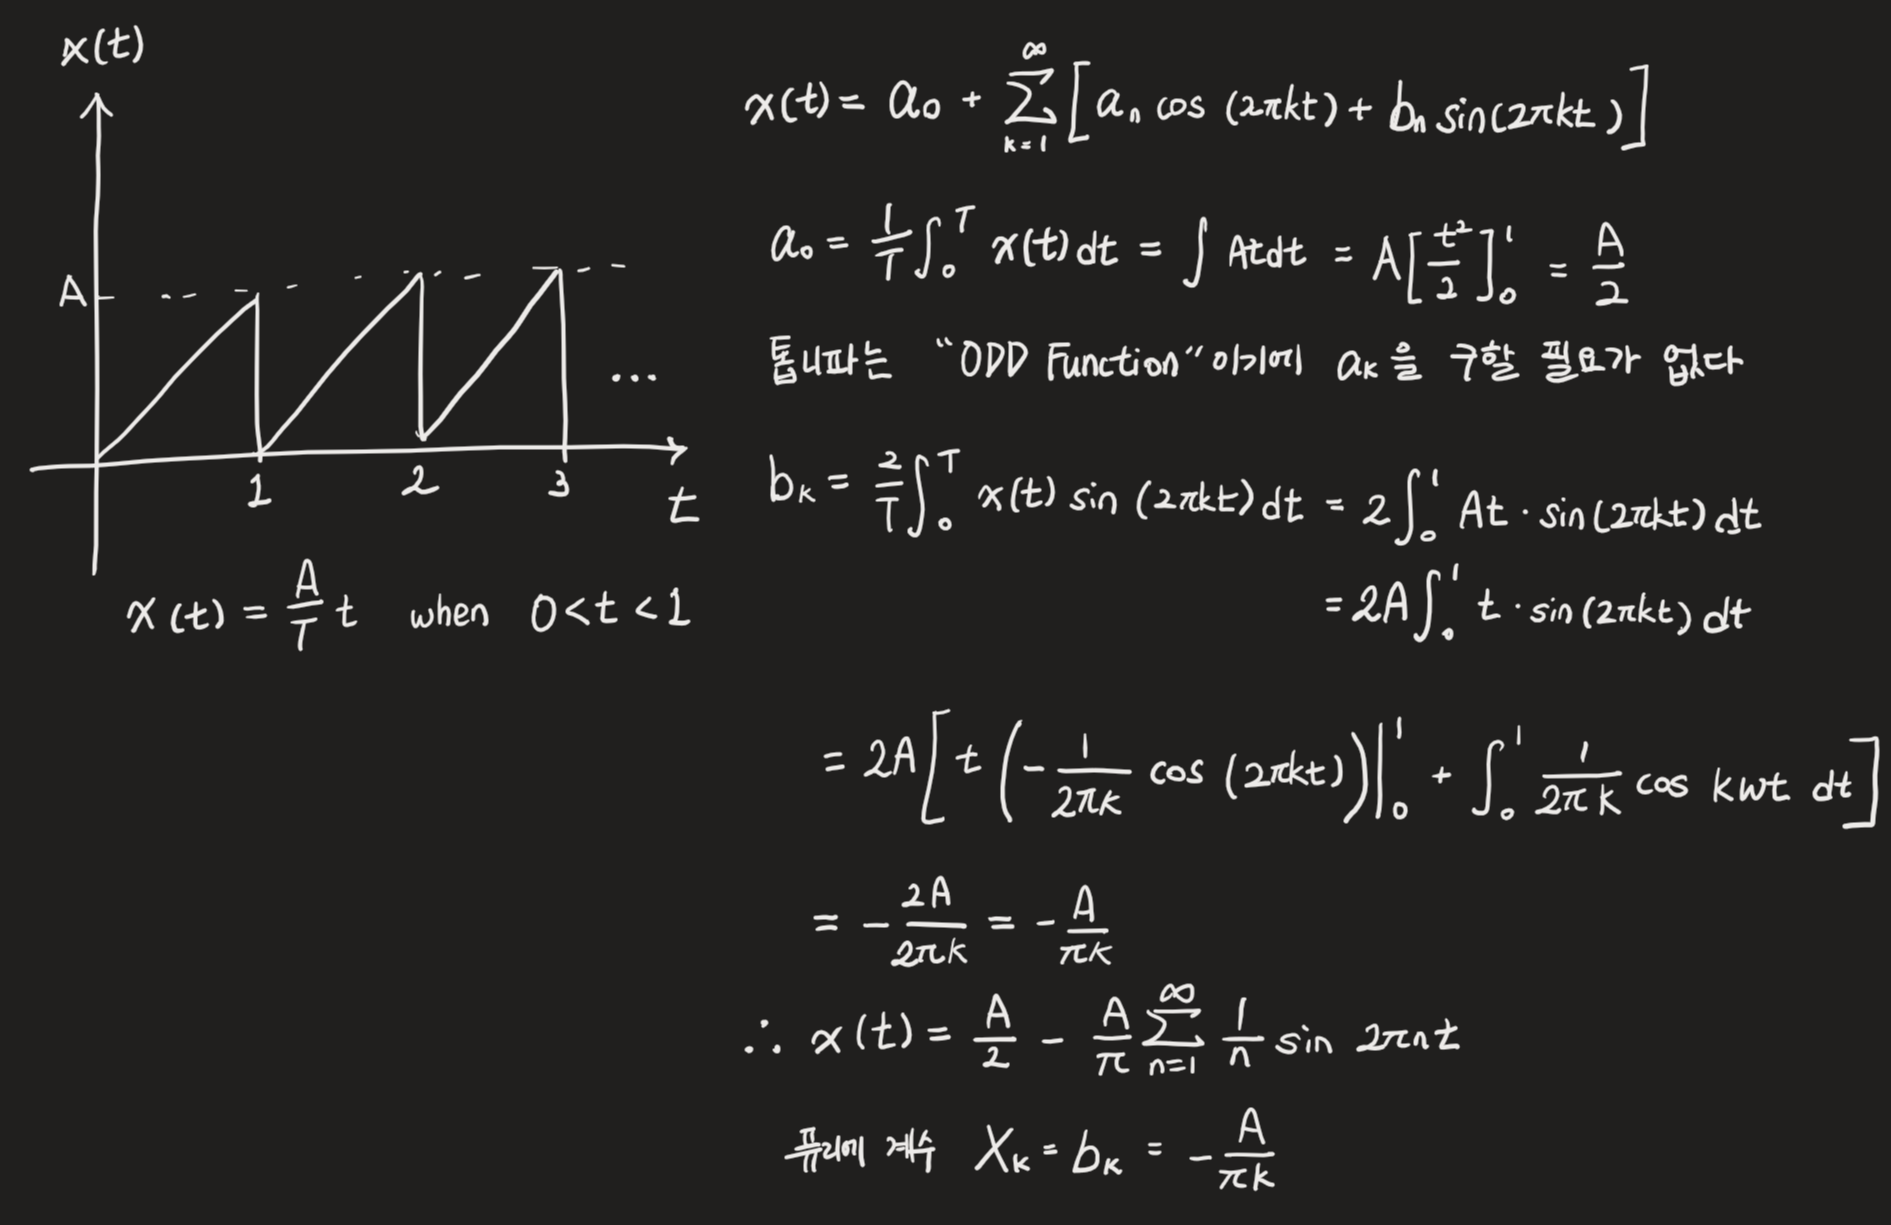 x(t)
A
1 2 3 t
...
x(t) = A/T t when 0<t<1
x(t) = a₀ + ∞∑k=1 [aₙ cos (2πkt) + bₙ sin(2πkt)]
a₀ = 1/T ∫₀ᵀ x(t) dt = ∫ Atdt = A[t²/2]₀¹ = A/2
톱니파는 “ODD Function” 이기에 aₖ을 구할 필요가 없다
bₖ = 2/T ∫₀ᵀ x(t) sin (2πkt) dt = 2∫₀¹ At · sin(2πkt) dt
= 2A∫₀¹ t · sin(2πkt) dt
= 2A[t (-1/2πk cos (2πkt))|₀¹ + ∫₀¹ 1/2πk cos kwt dt]
= - 2A/2πk = - A/πk
∴ x(t) = A/2 - A/π ∞∑n=1 1/n sin 2πnt
퓨리에 계수 Xₖ = bₖ = - A/πk